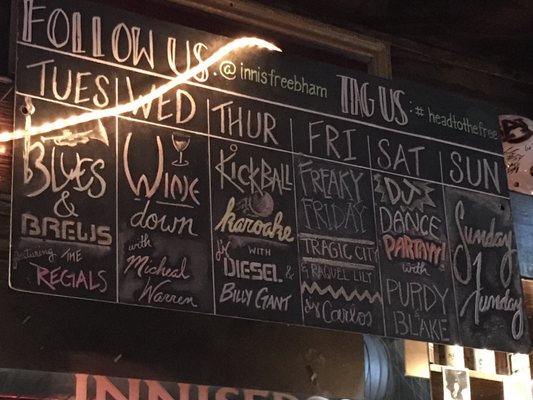 FOLLOW US: @innisfreebham
TAG US: #headtothefree
TUES
BLUES
&
BREWS
featuring THE
REGIALS
WED
WINE
down
with
Micheal
Warren
THUR
KICKBALL
karoake
WITH
DIESEL &
BILLY GANT
FRI
FREAKY
FRIDAY
TRAGIC CITY
& RAQUEL LILY
Carlos
SAT
DJ
DANCE
PARTAYY!
with
PURDY
& BLAKE
SUN
Sunday
Funday
INNISFR